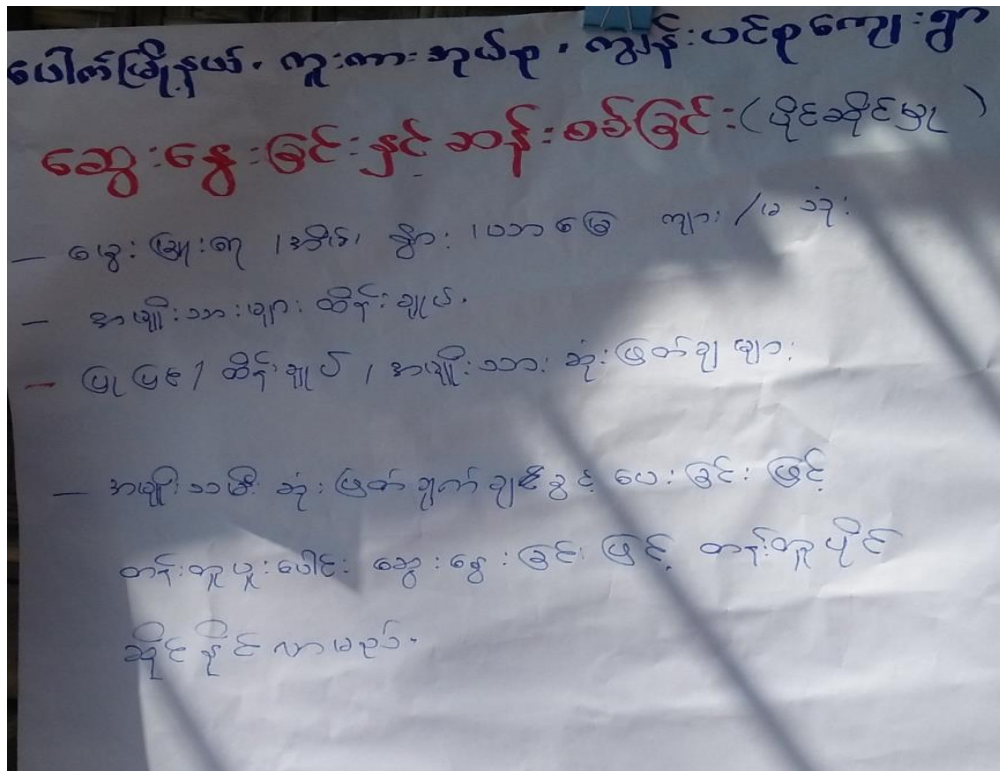 ပေါက်မြို့နယ်၊ ကူးကားအုပ်စု၊ ကျွန်းပင်စုကျေးရွာ
ဆွေးနွေးခြင်းနှင့်ဆန်းစစ်ခြင်း(ပိုင်ဆိုင်မှု)
– မွေးမြူးရေ /အိမ်၊ နွား၊ ယာမြေ ကျား/မ သုံး
– အမျိုးသားများ ထိန်းချုပ်.
– ပြုပြင်/ ထိန်းချုပ် / အမျိုးသား ဆုံးဖြတ်ချများ
– အမျိုးသမီး ဆုံးဖြတ်ချက်ချနိုင်ခွင့် ပေးခြင်းဖြင့်
တန်းတူပူးပေါင်း ဆွေးနွေးခြင်းဖြင့် တန်းတူပိုင်
ဆိုင်နိုင်လာမည်.